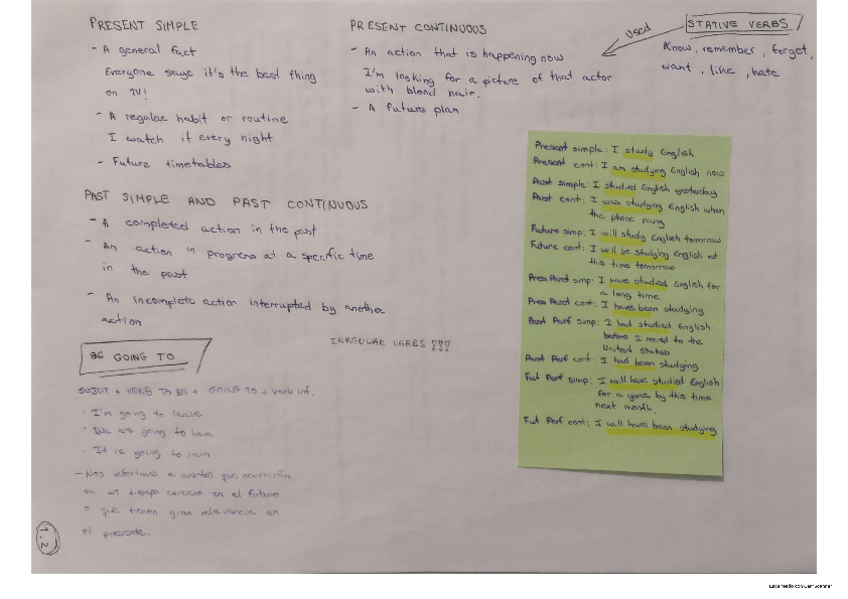 PRESENT SIMPLE
- A general fact
Everyone says it's the best thing
on TV!
- A regular habit or routine
I watch it every night
- Future timetables
PRESENT CONTINUOUS
- An action that is happening now
I'm looking for a picture of that actor
with blond hair.
- A future plan
used
STATIVE VERBS
Know, remember, forget,
want, like, hate
PAST SIMPLE AND PAST CONTINUOUS
- A completed action in the past
- An action in progress at a specific time
in the past
- An incomplete action interrupted by another
action
IRREGULAR VERBS !!!
BE GOING TO
SUJET + VERB TO BE + GOING TO + verb inf.
· I'm going to leave
going to
· It is going to rain
- Nos referimos a eventos que ocurrirán
en un tiempo cercano en el futuro
o que tienen gran relevancia en
el presente.
1.2
Present simple: I study English
Present cont: I am studying English now
Past simple I studied English yesterday
Past cont: I was studying English when
the phone rang
Future simp: I will study English tomorrow
Future cont: I will be studying English at
this time tomorrow
Pres Perf simp: I have studied English for
a long time
Pres Perf cont: I have been studying
Past Perf simp: I had studied English
before I moved to the
United States
Past Perf cont: I had been studying
Fut Perf simp: I will have studied English
for a year by this time
next month.
Fut Perf cont: I will have been studying